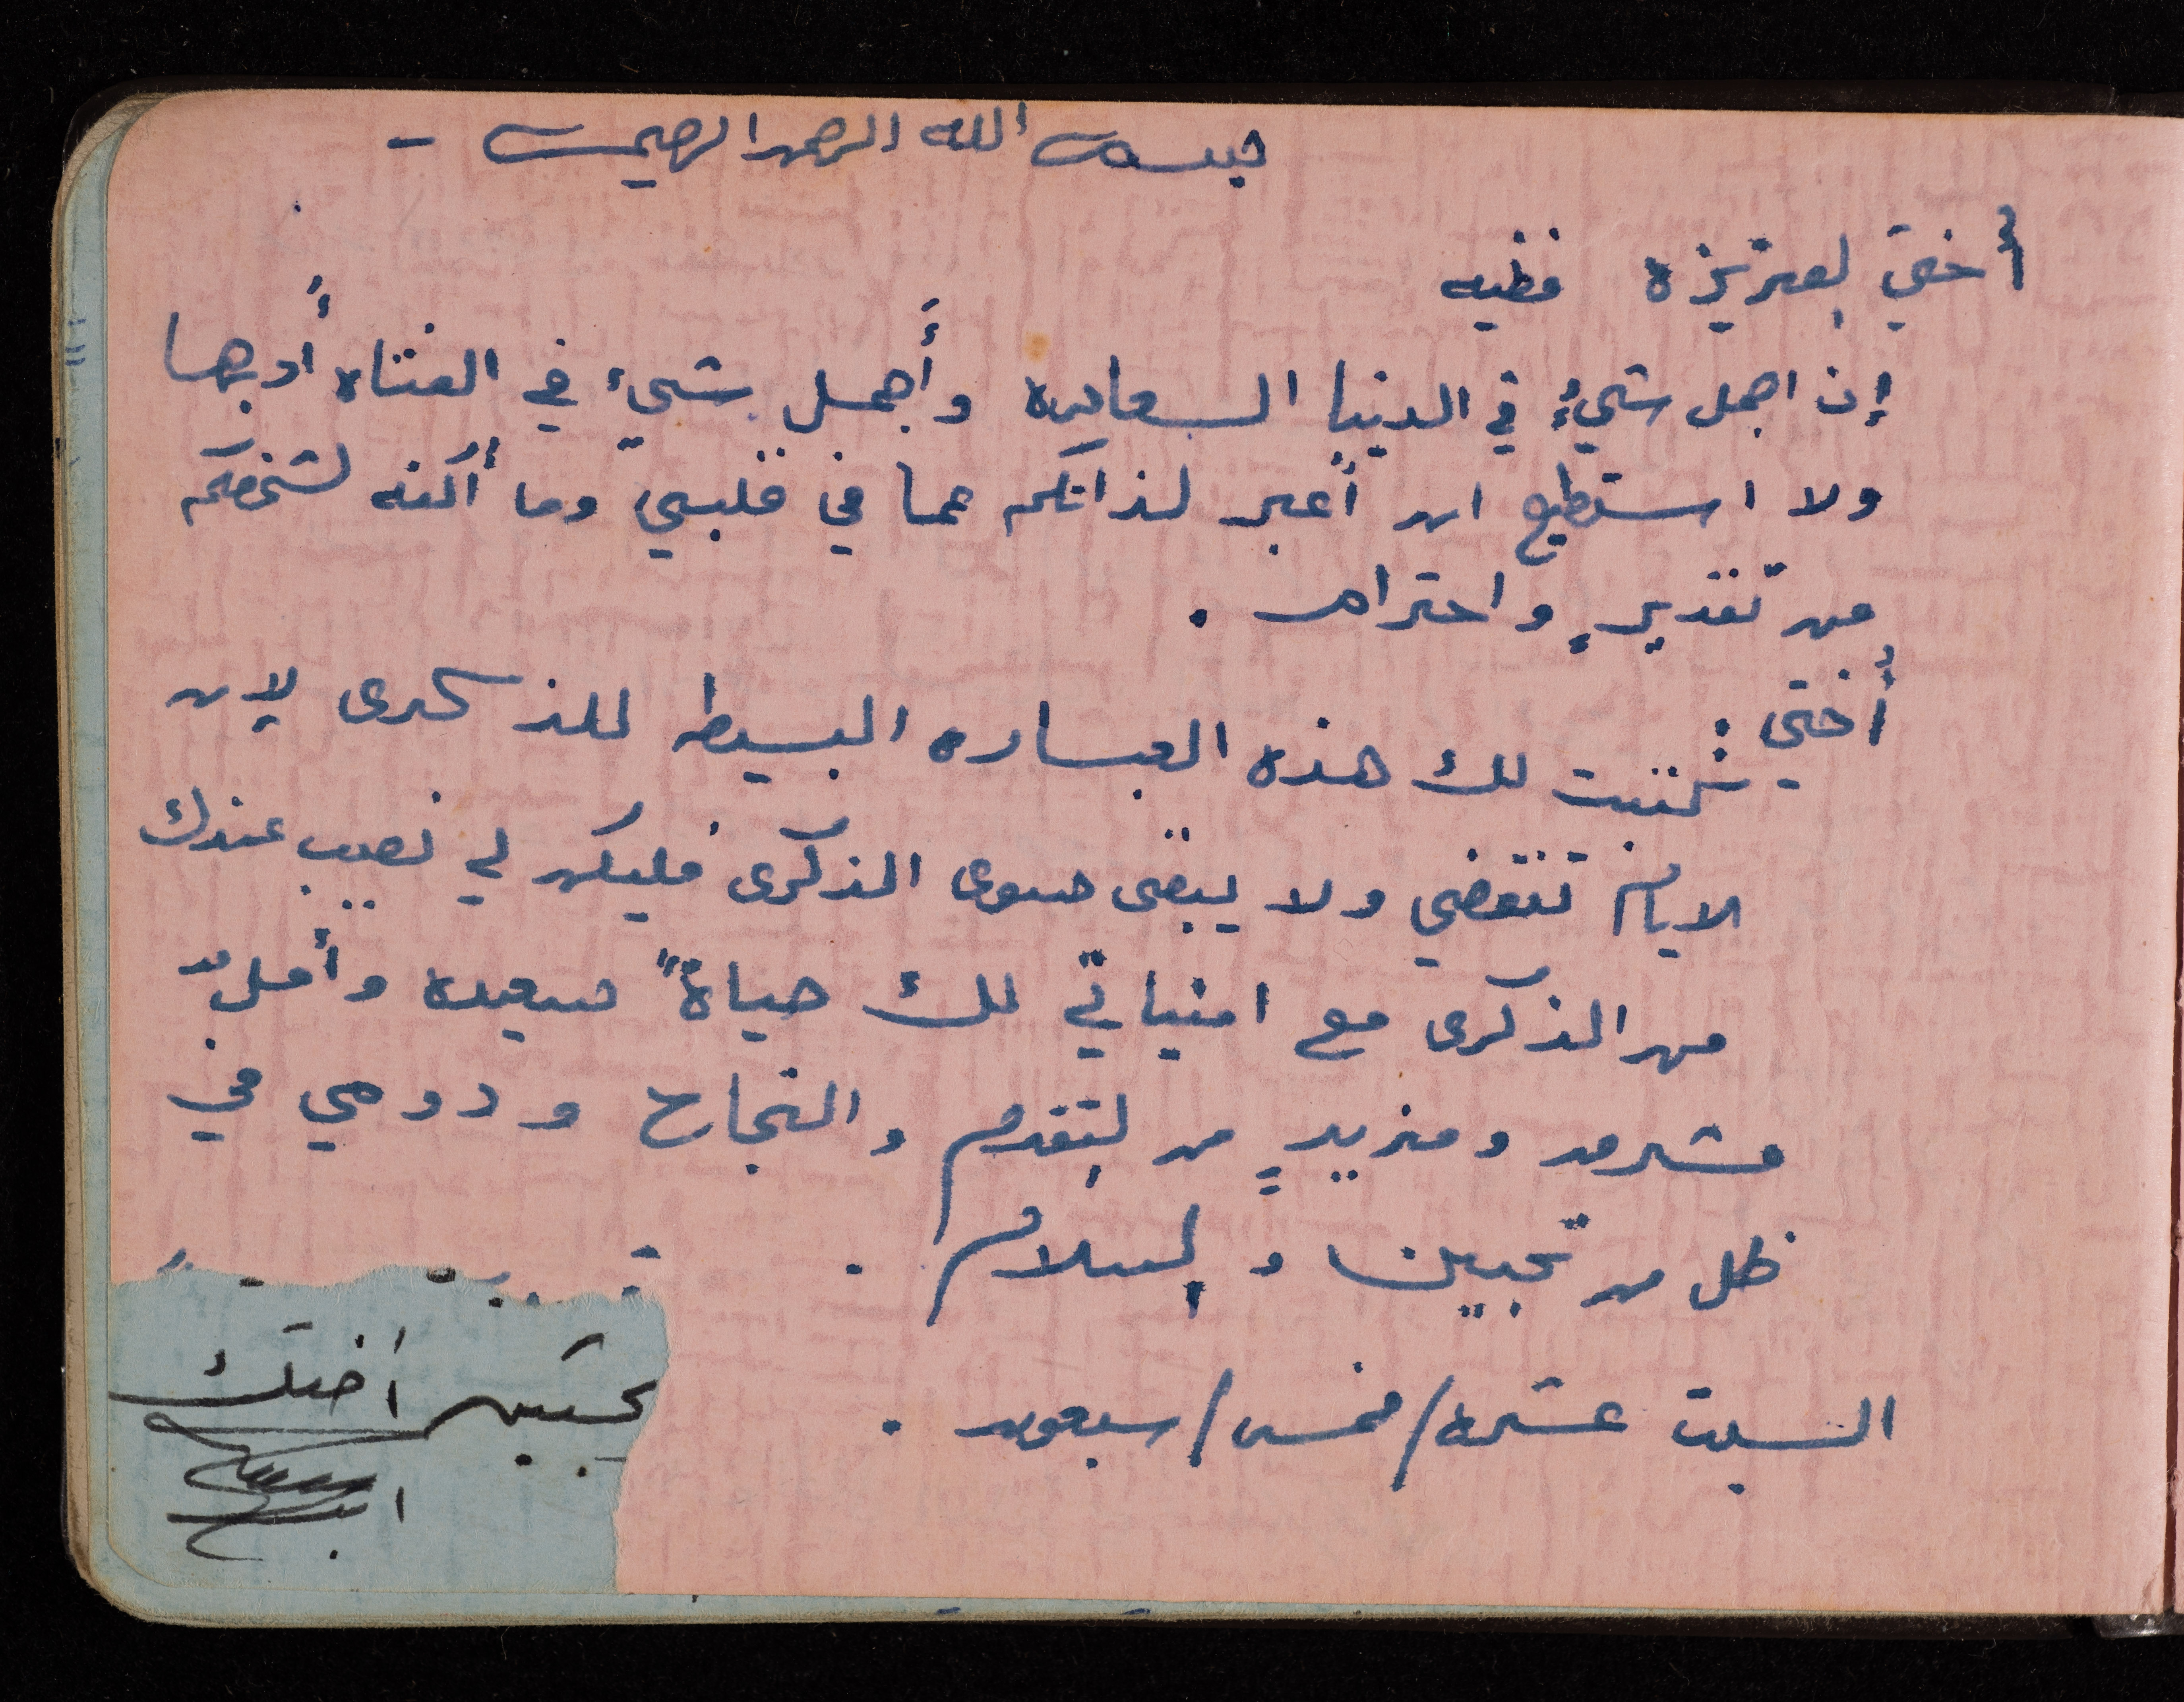 بسم الله الرحمن الرحيم -
أختي العزيزه فظيه
إن اجمل شيءٍ في الدنيا السعاده وأجمل شيء في الفتاه أدبها
ولا استطيع ان أعبر لذاتكم عما في قلبي وما أكنه لشخصكم
من تقديرٍ واحترام .
أختي :
كتبت لك هذه العباره البسيطه للذكرى لإن
الايام تنقضي ولا يبقى سوى الذكرى فليكن لي نصيب عندك
من الذكرى مع امنياتي لك حياةً سعيده وأملٌ
مشرق ومزيدٍ من التقدم والنجاح ودومي في
ظل من تحبين والسلام .
السبت عشره/خمس/سبعون .
اختك